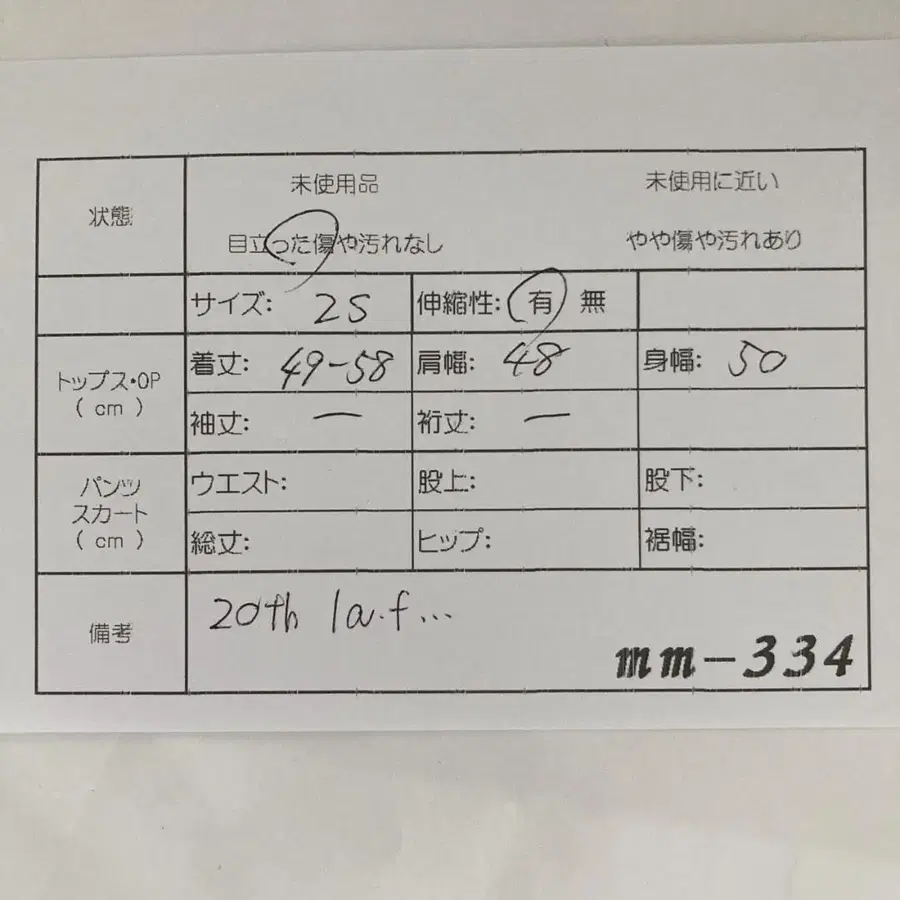 状態 未使用品 未使用に近い
目立った傷や汚れなし やや傷や汚れあり
サイズ: 2S 伸縮性: 有 無
トップス・OP
( cm )
着丈: 49-58 肩幅: 48 身幅: 50
袖丈: ー 裄丈: ー
パンツ
スカート
( cm )
ウエスト: 股上: 股下:
総丈: ヒップ: 裾幅:
備考 20th la.f...
mm-334